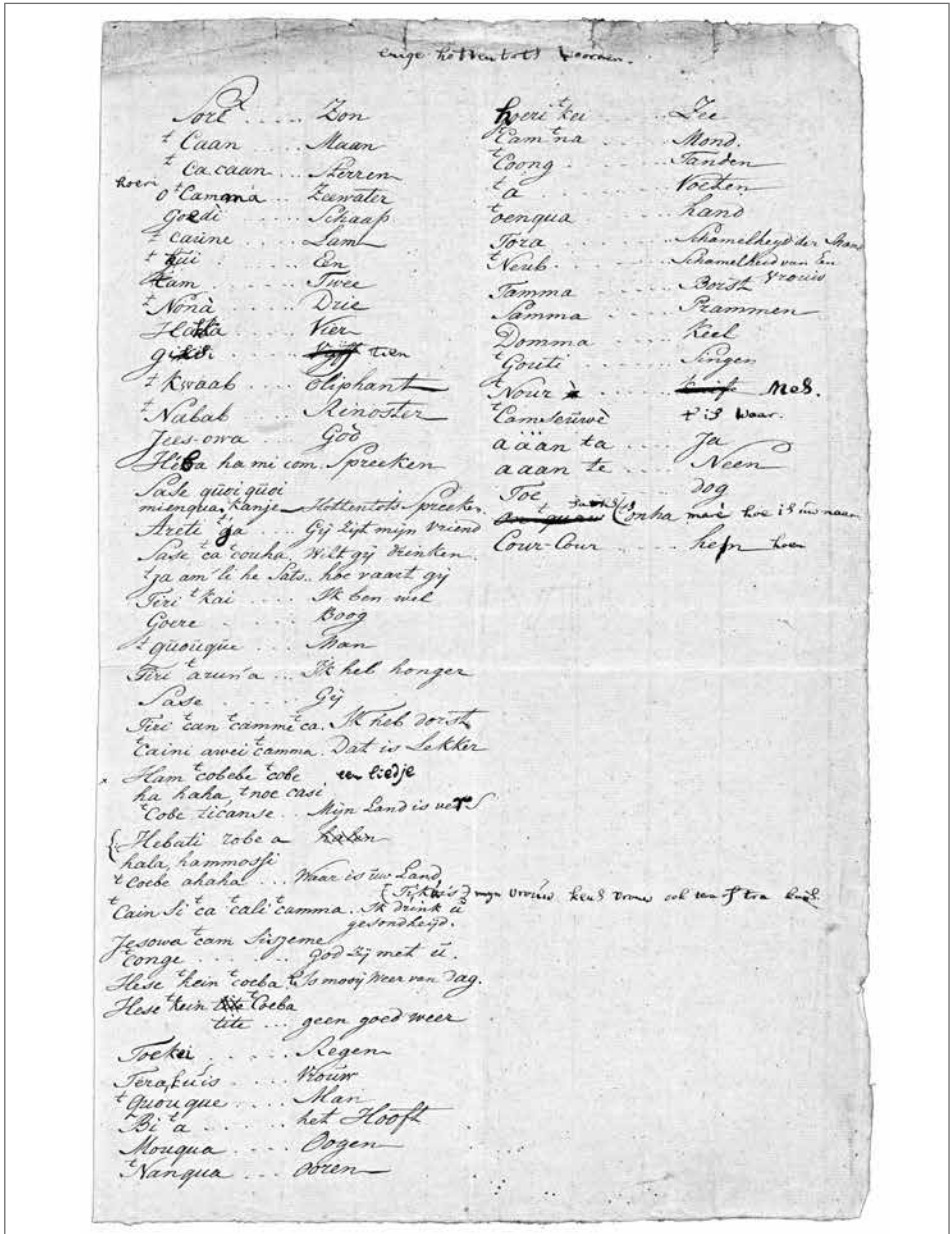 enige hottentots woorden.
Soré ..... Zon
ᵗ Caan ..... Maan
ᵗ Ca caan ... Sterren
hoeri
o ᵗCamǫna ... Zeewater
Goedi ..... Schaap
ᵗ caüne ..... Lam
ᵗ kui ..... Een
ᵗkam ..... Twee
ᵗNonà ..... Drie
Hakka ..... Vier
gissi ..... Vÿff tien
ᵗ Kwaab ... Oliphant
ᵗNabab ... Rinoster
Jees-owa ... God
Heba ha mi com. Spreeken
Sase qüoi qüoi
mienqua, kanje Hottentots Spreeken.
Areti ᵗga ... Gij Zijt mijn Vriend
Sase ᵗca ᵗcouha Wilt gij drinken.
ᵗja am'li he Sats. hoe vaart gij
Tiri ᵗkai ..... Ik ben wel
Goere ..... Boog
ᵗ qüouqüe ... Man
Tiri ᵗarun'a ... Ik heb honger
Sase ..... Gij
Tiri ᵗcan ᵗcammi ca. Ik heb dorst
ᵗCaini awei ᵗcamma. Dat is Lekker
x Ham ᵗcobebe ᵗcobe een liedje
ha haha, ᵗnoe casi
ᵗCobe ticanse .. Mijn Land is ver
{ Hebati zobe a halen
hala, hammossi
ᵗCoebe ahaha ... Waar is üw Land,
ᵗCain Si ᵗca ᵗcali ᵗcamma. Ik drink ü
gesondheyd.
Jesowa ᵗcam Siszeme
ᵗConge ..... god zij met ü.
Hese ᵗhein ᵗcoeba Is mooij Weer van dag.
Hese ᵗkein ᵗCoeba
tite ... geen goed weer
Toekei ..... Regen
Terakuis ..... Vroüw
ᵗQuouque ..... Man
Bi ᵗa ..... het Hooft
Mouqua ..... Oogen
ᵗNanqua ..... ooren
hoeri ᵗkei ..... Zee
ᵗCam ᵗna ..... Mond.
ᵗCoong ..... Tanden
ᵗa ..... Voeten
ᵗoenqua ..... hand
Tora ..... Schamelheyd der Man
ᵗNeub ..... Schamelheid van Een
Vrouw
Tamma ..... Borst
Samma ..... Prammen
Domma ..... Keel
ᵗGouti ..... Singen
ᵗNour ..... Mes.
ᵗCamseüwè ..... t is Waar.
aään ta ..... Ja
aaan te ..... Neen
Toe ..... dog
onha maré hoe is uw naam
Cour-Cour ..... hen hoen
mijn vrouw